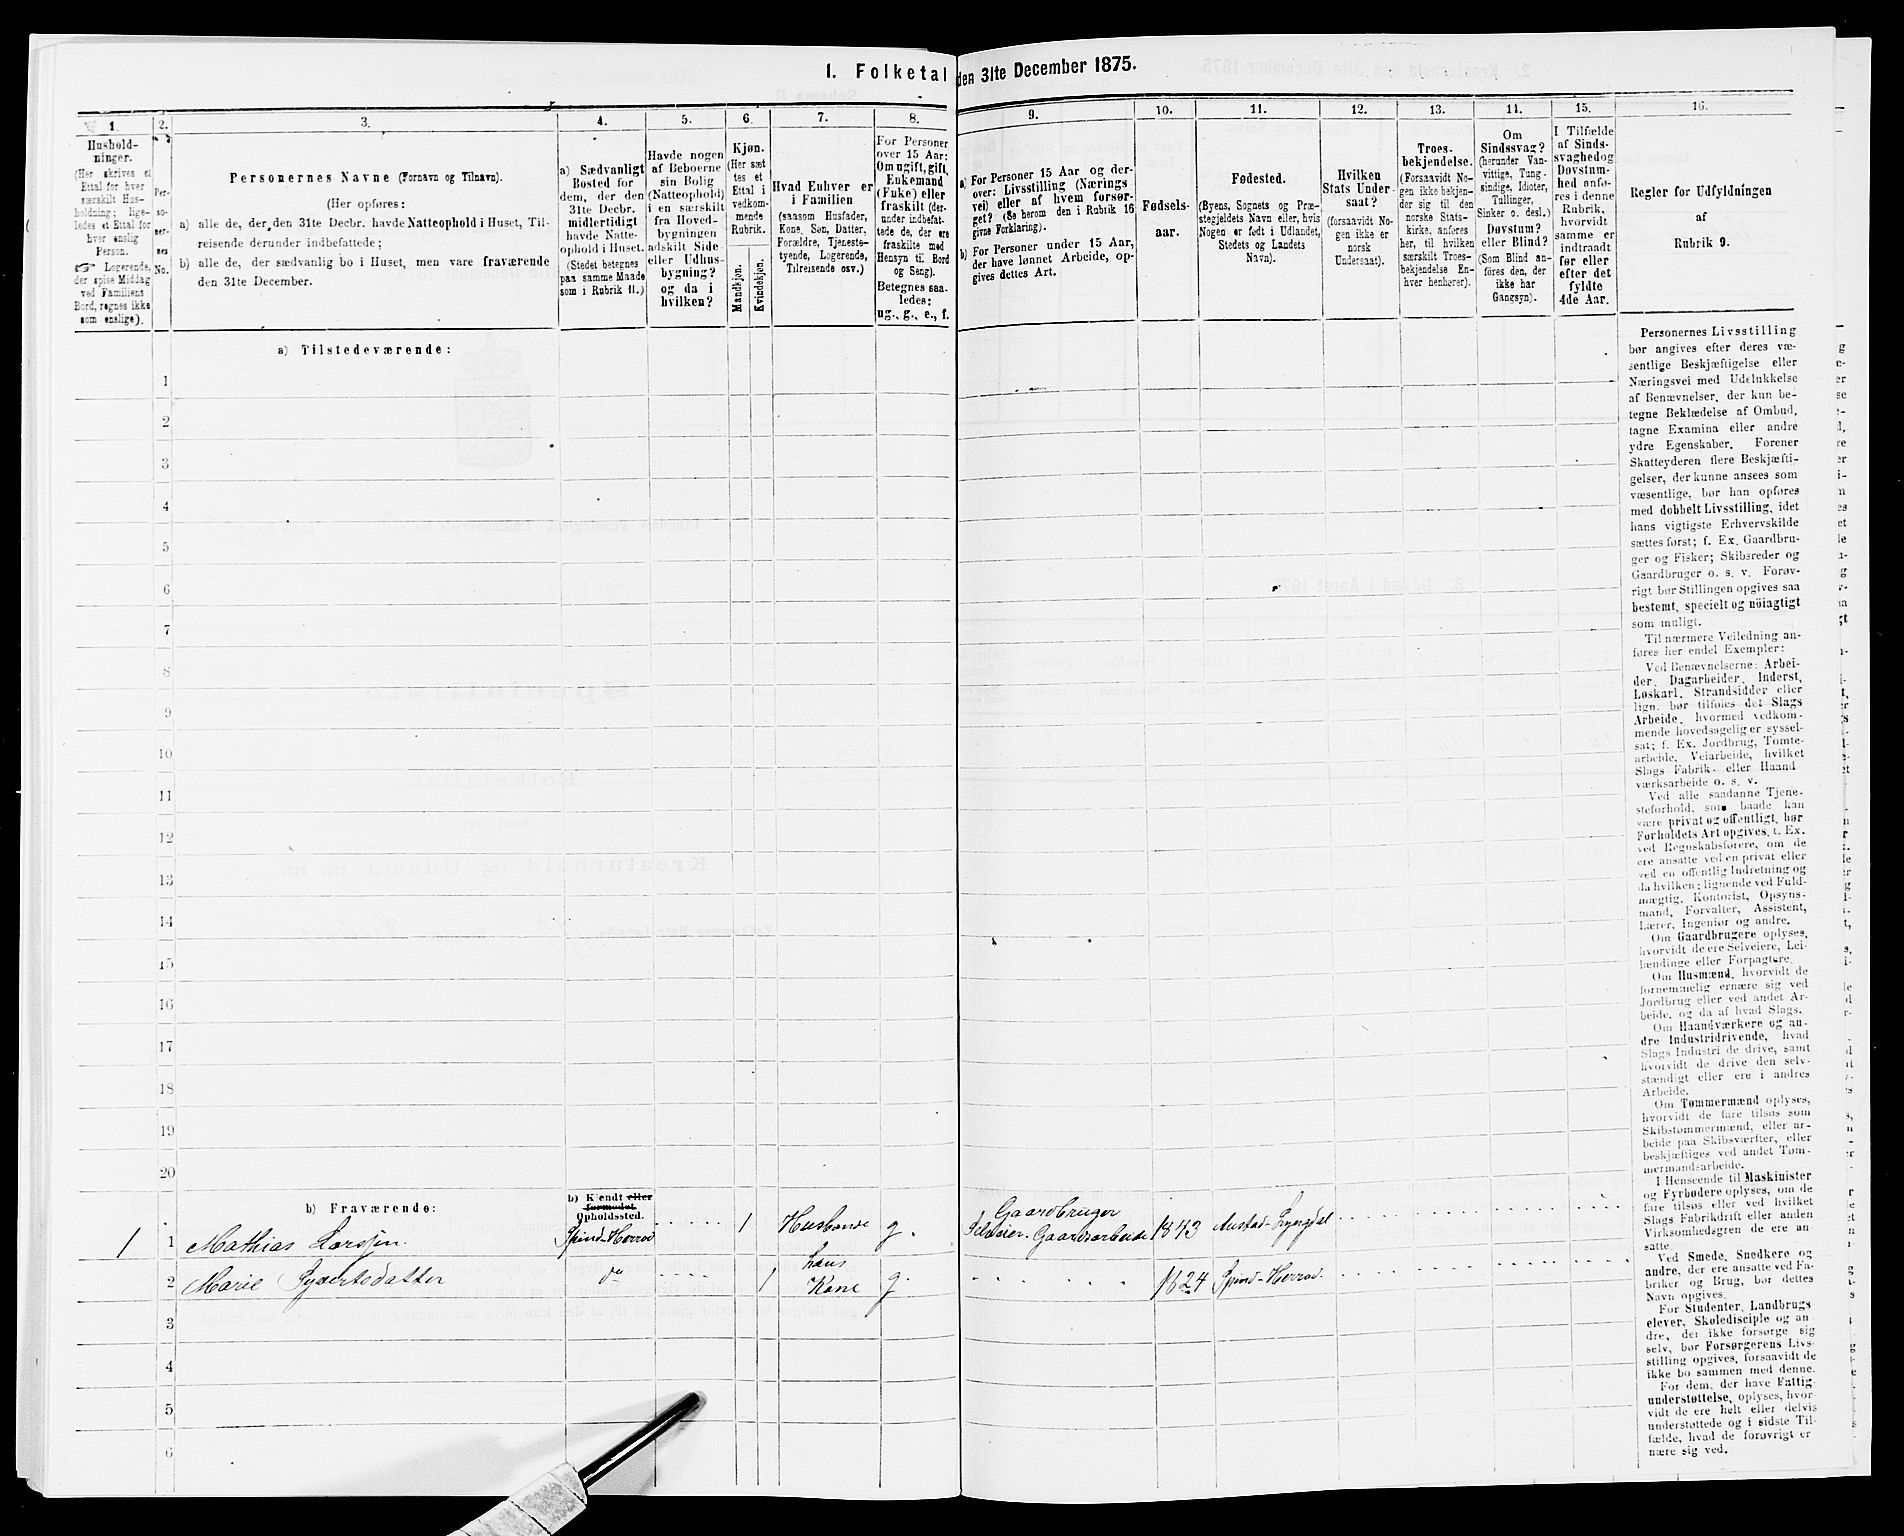 1. Folketal den 31te December 1875.
1.
Hushold-
ninger.
(Her skrives et
Ettal for hver
særskilt Hus-
holdning; lige-
ledes et Ettal for
hver enslig
Person.
☞ Logerende,
der spise Middag
ved Familiens
Bord, regnes ikke
som enslige).
2.
Per-
so-
ner-
nes
No.
3.
Personernes Navne (Fornavn og Tilnavn).
(Her opføres:
a) alle de, der den 31te Decbr. havde Natteophold i Huset, Til-
reisende derunder indbefattede;
b) alle de, der sædvanlig bo i Huset, men vare fraværende
den 31te December.
4.
a) Sædvanligt
Bosted for
dem, der den
31te Decbr.
midlertidigt
havde Natte-
ophold i Huset.
(Stedet betegnes
paa samme Maade
som i Rubrik 11.)
5.
Havde nogen
af Beboerne
sin Bolig
(Natteophold)
i en særskilt
fra Hoved-
bygningen
adskilt Side
eller Udhus-
bygning?
og da i
hvilken?
6.
Kjøn.
(Her sæt
tes et
Ettal i
vedkom-
mende
Rubrik.
Mandkjøn.
Kvindekjøn.
7.
Hvad Enhver er
i Familien
(saasom Husfader,
Kone, Søn, Datter,
Forældre, Tjeneste-
tyende, Logerende,
Tilreisende osv.)
8.
For Personer
over 15 Aar:
Om ugift, gift,
Enkemand
(Enke) eller
fraskilt (der-
under indbefat-
tede de, der ere
fraskilte med
Hensyn til Bord
og Seng).
Betegnes saa-
ledes:
ug., g., e., f.
9.
a) For Personer 15 Aar og der-
over: Livsstilling (Nærings
vei) eller af hvem forsør-
get? (Se herom den i Rubrik 16
givne Forklaring).
b) For Personer under 15 Aar,
der have lønnet Arbeide, op-
gives dettes Art.
10.
Fødsels-
aar.
11.
Fødested.
(Byens, Sognets og Præ-
stegjeldets Navn eller, hvis
Nogen er født i Udlandet,
Stedets og Landets
Navn).
12.
Hvilken
Stats Under-
saat?
(forsaavidt No-
gen ikke er
norsk
Undersaat).
13.
Troes-
bekjendelse.
(Forsaavidt No-
gen ikke bekjen-
der sig til den
norske Stats-
kirke, anføres
her, til hvilken
særskilt Troes-
bekjendelse En-
hver henhører).
14.
Om
Sindssvag?
(herunder Van-
vittige, Tung-
sindige, Idioter,
Tullinger,
Sinker o. desl.)
Døvstum?
eller Blind?
(Som Blind an-
føres den, der
ikke har
Gangsyn).
15.
I Tilfælde
af Sinds-
svaghed og
Døvstum-
hed anfø-
res i denne
Rubrik,
hvorvidt
samme er
indtraadt
før eller
efter det
fyldte
4de Aar.
16.
Regler for Udfyldningen
af
Rubrik 9.
Personernes Livsstilling
bør angives efter deres væ-
sentlige Beskjæftigelse eller
Næringsvei med Udelukkelse
af Benævnelser, der kun be-
tegne Beklædelse af Ombud,
tagne Examina eller andre
ydre Egenskaber. Forener
Skatteyderen flere Beskjæfti-
gelser, der kunne ansees som
væsentlige, bør han opføres
med dobbelt Livsstilling, idet
hans vigtigste Erhvervskilde
sættes først; f. Ex. Gaardbru-
ger og Fisker; Skibsreder og
Gaardbruger o. s. v. Forøv-
rigt bør Stillingen opgives saa
bestemt, specielt og nöiagtigt
som muligt.
Til nærmere Veiledning an-
føres her endel Exempler:
Ved Benævnelserne: Arbei-
der, Dagarbeider, Inderst,
Løskarl, Strandsidder eller
lign. bør tilføies det Slags
Arbeide, hvormed vedkom-
mende hovedsagelig er syssel-
sat; f. Ex. Jordbrug, Tømte-
arbeide, Veiarbeide, hvilket
Slags Fabrik- eller Haand-
værksarbeide o. s. v.
Ved alle saadanne Tjene-
steforhold, som baade kan
være privat og offentligt, bør
Forholdets Art opgives, t. Ex.
ved Regnskabsførere, om de
ere ansatte ved en privat eller
ved en offentlig Indretning og
da hvilken; lignende ved Fuld-
mægtig, Kontorist, Opsyns-
mand, Forvalter, Assistent,
Lærer, Ingeniør og andre.
Om Gaardbrugere oplyses,
hvorvidt de ere Selveiere, Lei-
lændinge eller Forpagtere.
Om Husmænd, hvorvidt de
fornemmelig ernære sig ved
Jordbrug eller ved andet Ar-
beide, og da af hvad Slags.
Om Haandværkere og an-
dre Industridrivende, hvad
Slags Industri de drive, samt
hvorvidt de drive den selv-
stændigt eller ere i andres
Arbeide.
Om Tømmermænd oplyses,
hvorvidt de fare tilsøs som
Skibstømmermænd, eller ar-
beide paa Skibsværfter, eller
beskjæftiges ved andet Tøm-
mermandsarbeide.
I Henseende til Maskinister
og Fyrbødere oplyses, om de
fare tilsøs eller ved hvilket
Slags Fabrikdrift eller anden
Virksomhedsgren de ere an-
satte.
Ved Smede, Snedkere og
andre, der ere ansatte ved Fa-
briker og Brug, bør dettes
Navn opgives.
For Studenter, Landbrugs
elever, Skoledisciple og an-
dre, der ikke forsørge sig
selv, bør Forsørgerens Livs-
stilling opgives, forsaavidt de
ikke bo sammen med denne.
For dem, der have Fattig
understøttelse, oplyses, hvor-
vidt de ere helt eller delvis
understøttede og i sidste Til-
fælde, hvad de forøvrigt er
nære sig ved.
a) Tilstedeværende:
1
2
3
4
5
6
7
8
9
10
11
12
13
14
15
16
17
18
19
20
b) Fraværende:
b) Kjendt eller
formodet
Opholdssted.
1 1 Mathias Larssen Spind-Herred 1 Husbonde g. Gaardbruger
Selveier. Gaardsarbeide 1843 Austad-Lyngdal
2 Marie Syvertsdatter do 1 hans
Kone g. 1824 Spind-Herred.
3
4
5
6